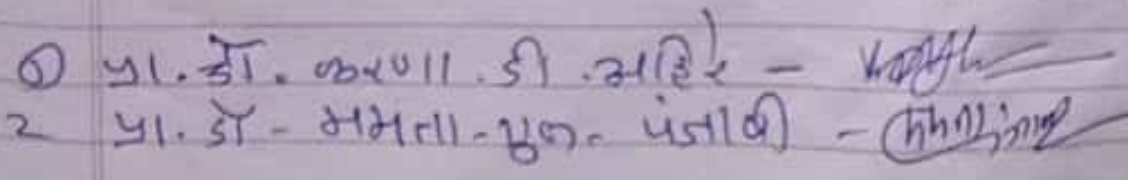 ① પ્રા. ડૉ. કરુણા. ડી. અહિરે -
2 પ્રા. ડૉ - મમતા - એન - પંજાબી -